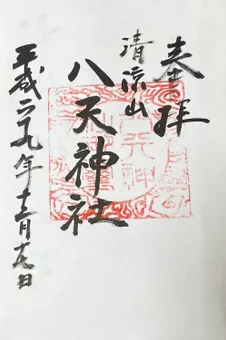 奉拝
清涼山
八天神社
平成二九年十二月十九日